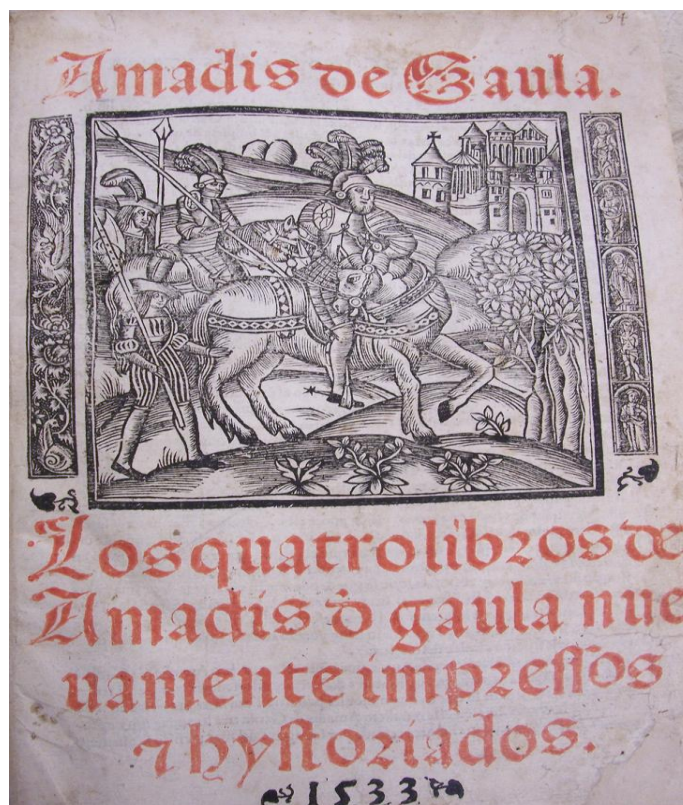 94
Amadis de Gaula.
Los quatro libros de
Amadis d̄ gaula nue
uamente impressos
⁊ hystoriados.
1533